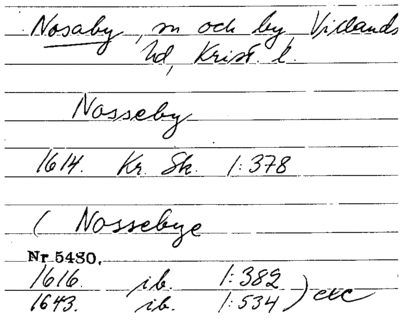 Nosaby, sn och by, Villands
hd, Krist. l.
Nosseby
1614. Kr. Sk. 1:378
( Nossebye
Nr 5480.
1616. ib. 1:382
1643. ib. 1:534 ) etc